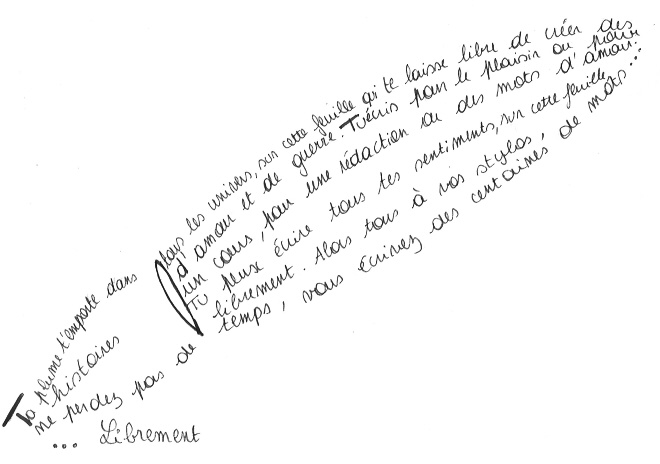 Ta plume t'emporte dans tous les univers, sur cette feuille qui te laisse libre de créer des
histoires d'amour et de guerre. Tu écris pour le plaisir ou pour
un cours, pour une rédaction ou des mots d'amour.
Tu peux écrire tous tes sentiments, sur cette feuille,
librement. Alors tous à vos stylos,
ne perdez pas de temps, vous écrivez des centaines de mots...
... Librement